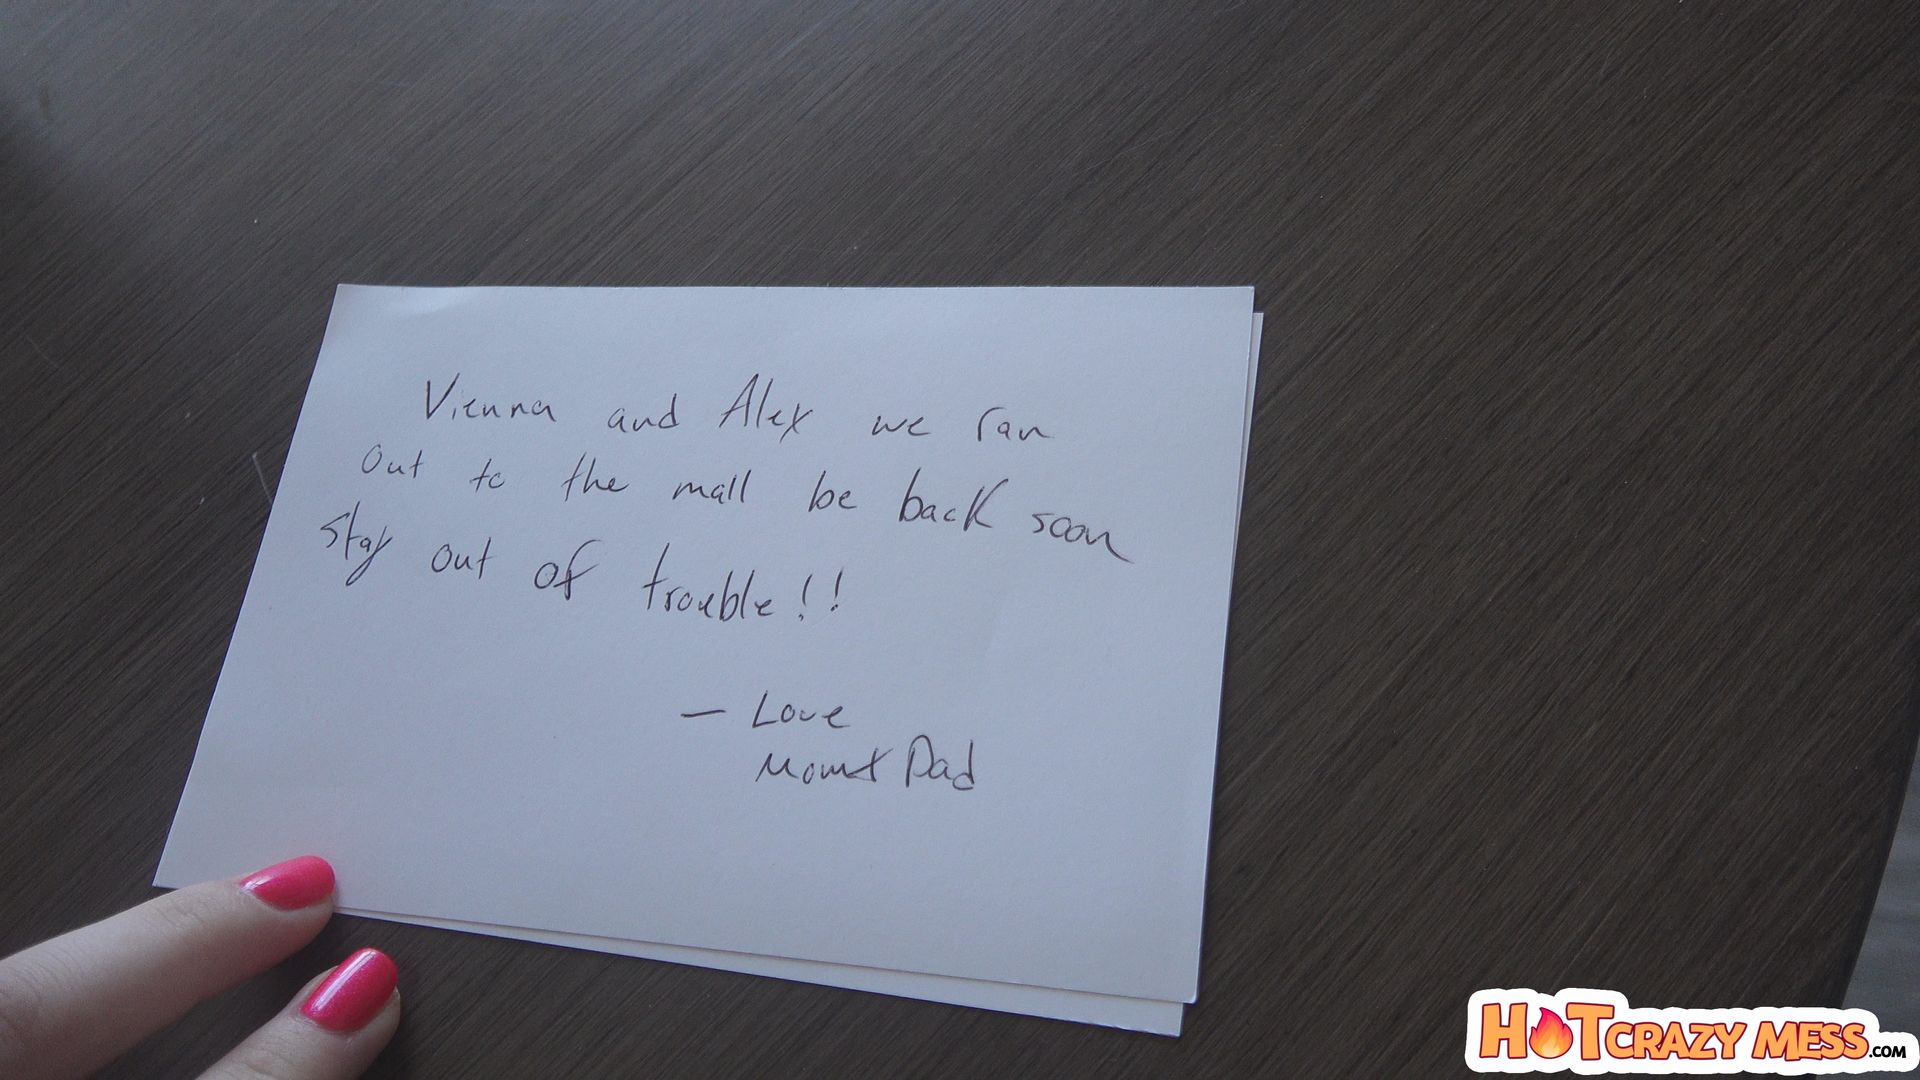 Vienna and Alex we ran
out to the mall be back soon
stay out of trouble!!
— Love
Mom & Dad
HOTCRAZY MESS.COM